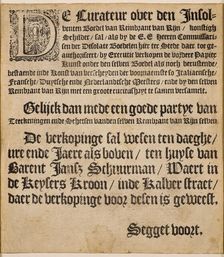 DE Curateur over den Insol-
venten Boedel van Rembrant van Rijn, konstigh
Schilder, sal, als by de E.E. Heeren Commissaris-
sen der Desolate Boedelen hier ter Stede daer toe ge-
authoriseert, by Executie verkopen de vordere Papier
Kunst onder den selven Boedel als noch berustende,
bestaende inde Konst van verscheyden der voornaemste so Italiaensche,
Fransche, Duytsche ende Nederlandtsche Meesters, ende by den selven
Rembrant van Rijn met een groote curieusheyt te samen versamelt.
Gelijck dan mede een goede partye van
Teeckeningen ende Schetsen vanden selven Rembrant van Rijn selven.
De verkopinge sal wesen ten daeghe,
ure ende Jaere als boven, ten huyse van
Barent Jansz Schuurman, Waert in
de Keysers Kroon, inde Kalver straet,
daer de verkopinge voor desen is geweest.
Segget voort.